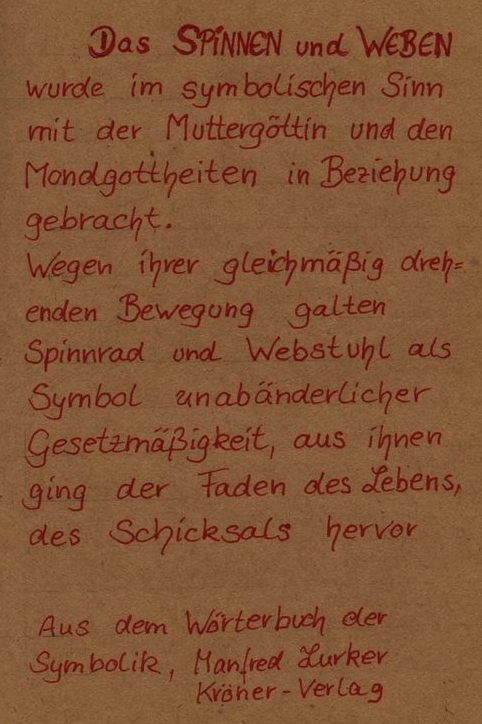 Das SPINNEN und WEBEN
wurde im symbolischen Sinn
mit der Muttergöttin und den
Mondgottheiten in Beziehung
gebracht.
Wegen ihrer gleichmäßig dreh=
enden Bewegung galten
Spinnrad und Webstuhl als
Symbol unabänderlicher
Gesetzmäßigkeit, aus ihnen
ging der Faden des Lebens,
des Schicksals hervor
Aus dem Wörterbuch der
Symbolik, Manfred Lurker
Kröner-Verlag